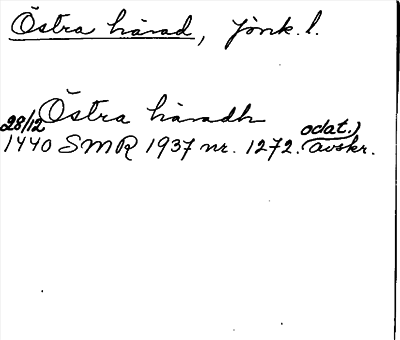 Östra härad, Jönk. l.
Östra häradh
28/12
1440 SMR 1937 nr. 1272. odat.) avskr.